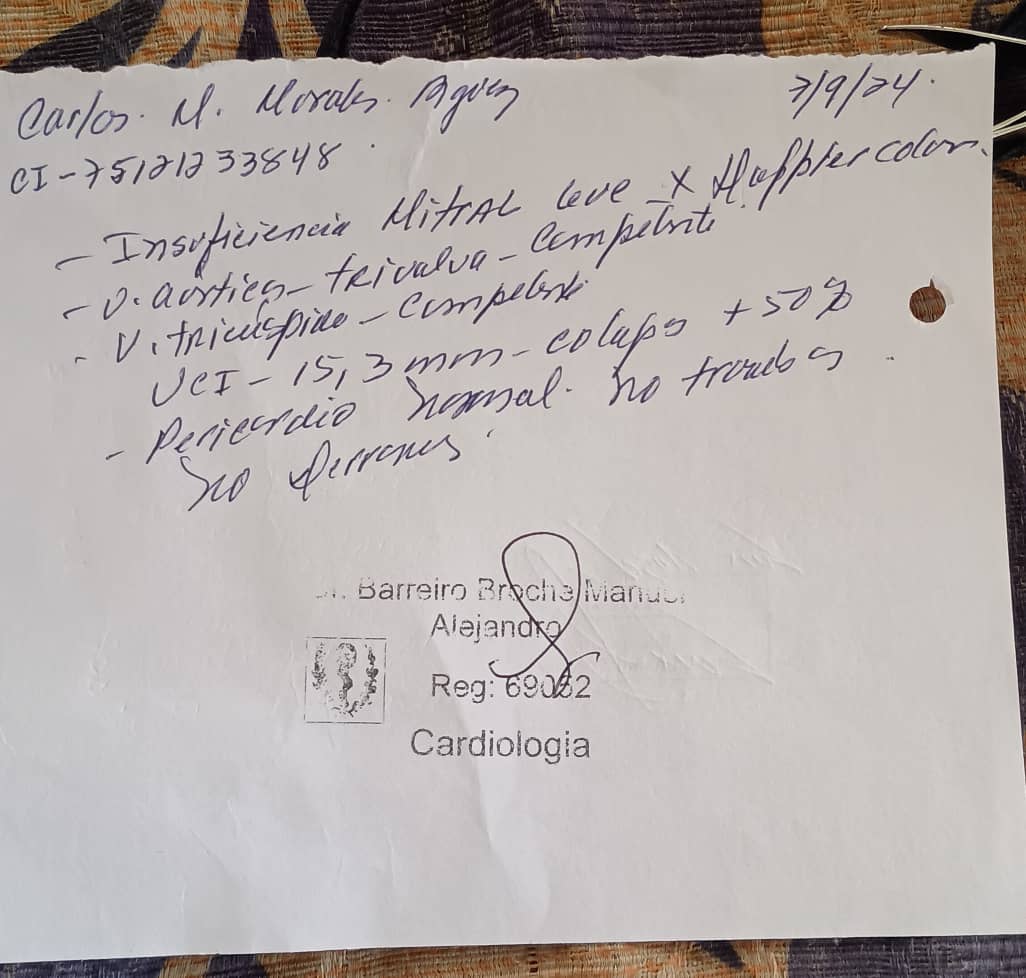 Carlos. M. Morales. 7/9/24.
CI-75121233848
- Insuficiencia Mitral leve x Doppler color.
- V. aórtica - trivalva - Competente
- V. tricúspide - Competente
VCI - 15,3 mm - colapso +50%
- Pericardio normal. No trombos
No derrames.
Dr. Barreiro Broche Manuel
Alejandro
Reg: 69052
Cardiologia